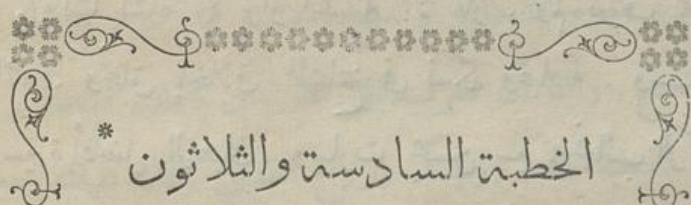 الخطبة السادسة والثلاثون *